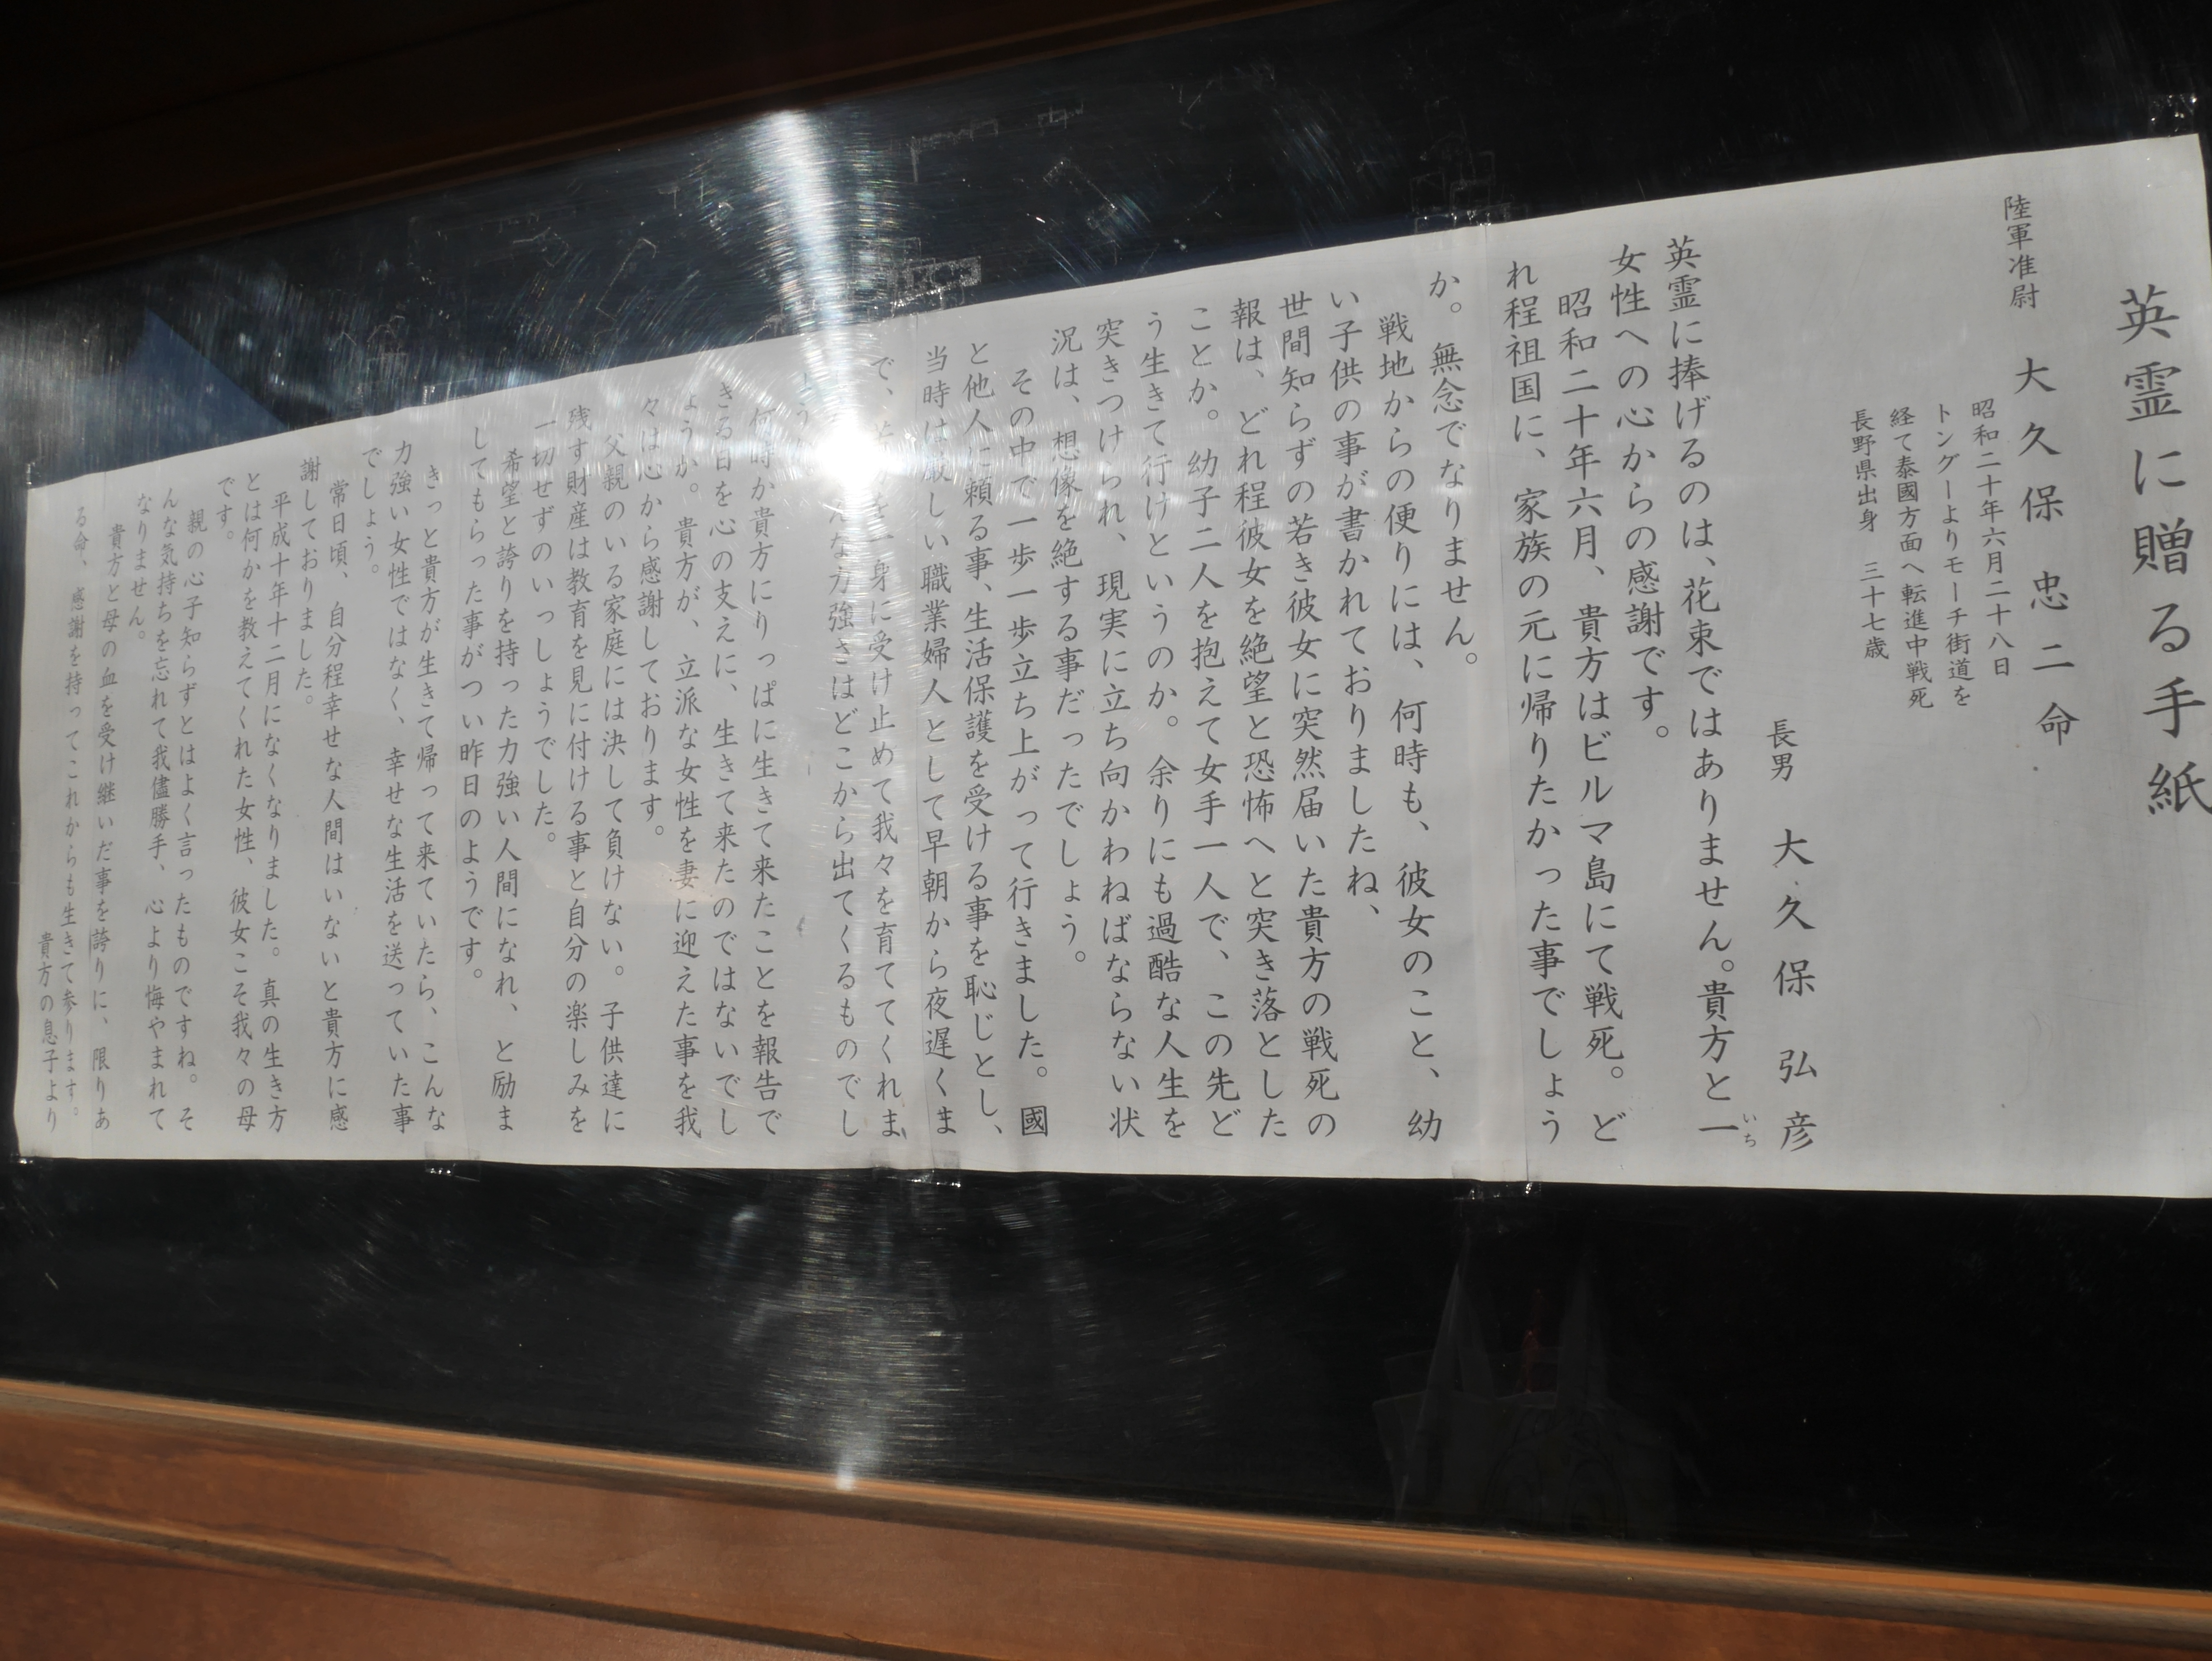 英霊に贈る手紙
陸軍准尉　大久保　忠二命
昭和二十年六月二十八日
トングーよりモーチ街道を
経て泰國方面へ転進中戦死
長野県出身　三十七歳
長男　大久保　弘彦
英霊に捧げるのは、花束ではありません。貴方と一
いち
女性への心からの感謝です。
昭和二十年六月、貴方はビルマ島にて戦死。ど
れ程祖国に、家族の元に帰りたかった事でしょう
か。無念でなりません。
戦地からの便りには、何時も、彼女のこと、幼
い子供の事が書かれておりましたね、
世間知らずの若き彼女に突然届いた貴方の戦死の
報は、どれ程彼女を絶望と恐怖へと突き落とした
ことか。幼子二人を抱えて女手一人で、この先ど
う生きて行けというのか。余りにも過酷な人生を
突きつけられ、現実に立ち向かわねばならない状
況は、想像を絶する事だったでしょう。
その中で一歩一歩立ち上がって行きました。國
と他人に頼る事、生活保護を受ける事を恥じとし、
当時は厳しい職業婦人として早朝から夜遅くま
で、を一身に受け止めて我々を育ててくれま
んな力強さはどこから出てくるものでし
ょう
何時か貴方にりっぱに生きて来たことを報告で
きる日を心の支えに、生きて来たのではないでし
ょうか。貴方が、立派な女性を妻に迎えた事を我
々は心から感謝しております。
父親のいる家庭には決して負けない。子供達に
残す財産は教育を見に付ける事と自分の楽しみを
一切せずのいっしょうでした。
希望と誇りを持った力強い人間になれ、と励ま
してもらった事がつい昨日のようです。
きっと貴方が生きて帰って来ていたら、こんな
力強い女性ではなく、幸せな生活を送っていた事
でしょう。
常日頃、自分程幸せな人間はいないと貴方に感
謝しておりました。
平成十年十二月になくなりました。真の生き方
とは何かを教えてくれた女性、彼女こそ我々の母
です。
親の心子知らずとはよく言ったものですね。そ
んな気持ちを忘れて我儘勝手、心より悔やまれて
なりません。
貴方と母の血を受け継いだ事を誇りに、限りあ
る命、感謝を持ってこれからも生きて参ります。
貴方の息子より